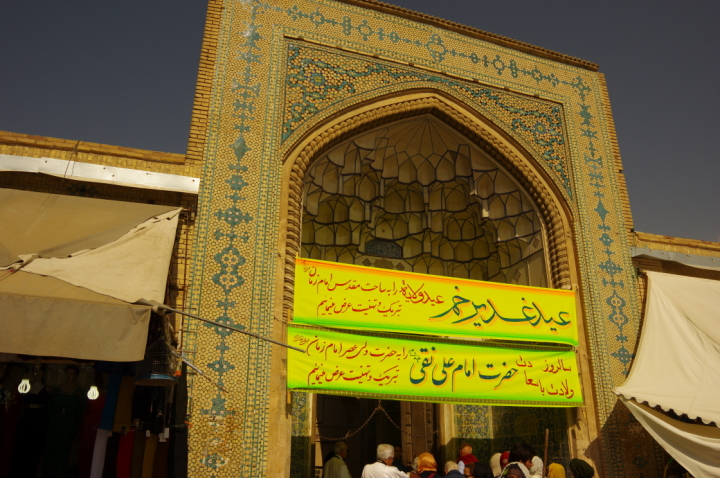 عید ولایت
عید غدیر خم
را به ساحت مقدس امام زمان
تبریک و تهنیت عرض مینمایم
سالروز
ولادت با سعادت
حضرت امام علی نقی
را به حضرت ولی عصر امام زمان
تبریک و تهنیت عرض مینمایم